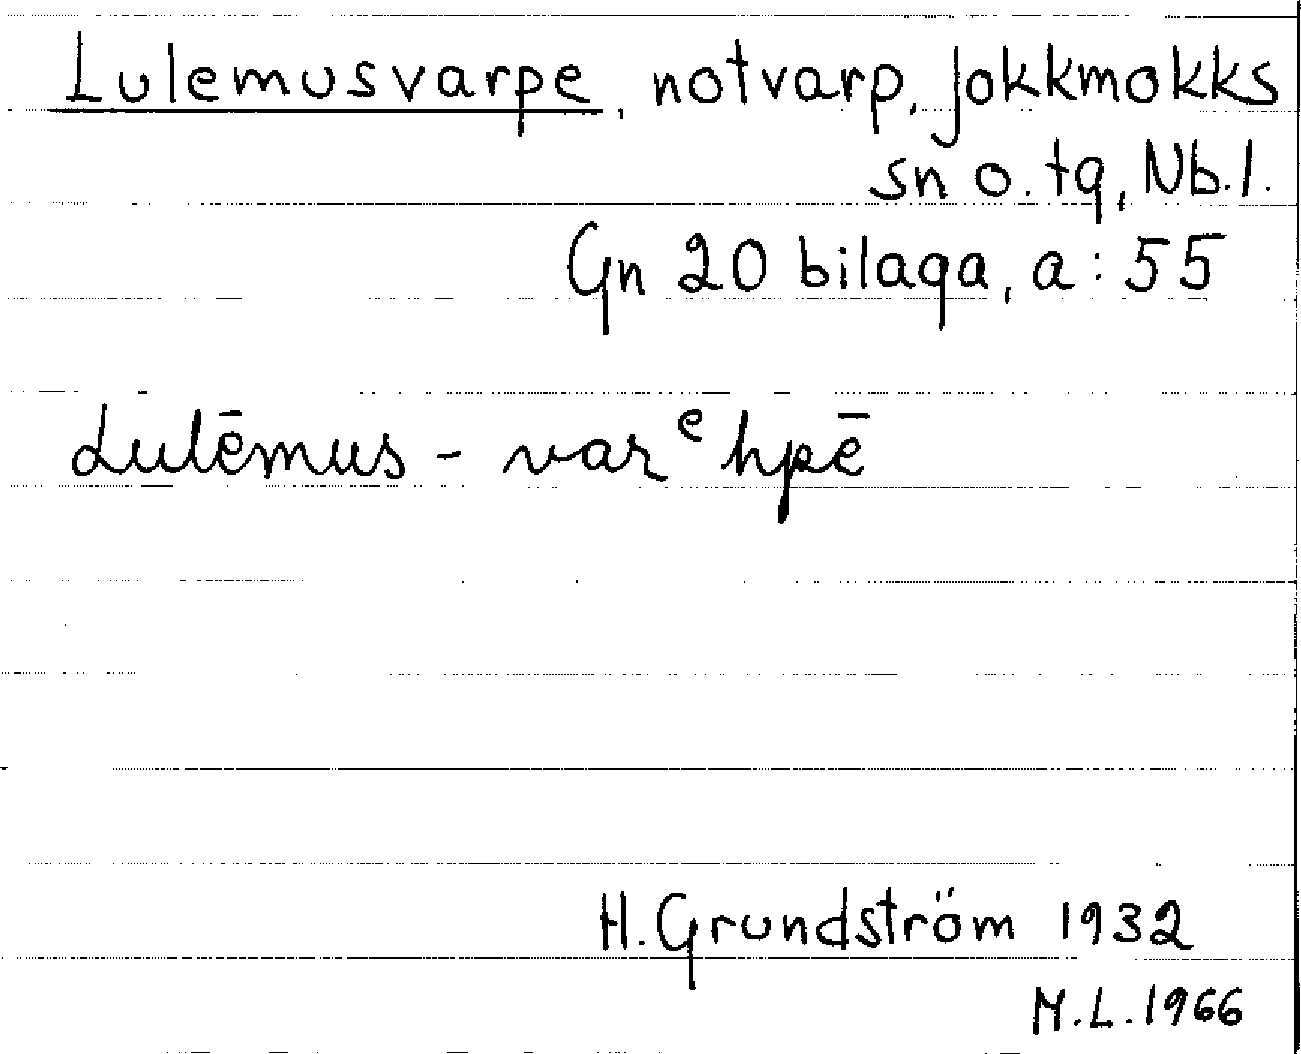 Lulemusvarpe, notvarp, Jokkmokks
sn o. tg, Nb.l.
Gn 20 bilaga, a:55
Lulēmus-varᵉhpē
H. Grundström 1932
M.L. 1966